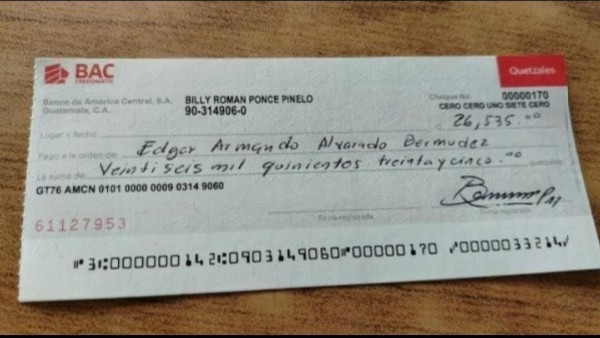 BAC
CREDOMATIC
Quetzales
Banco de América Central, S.A.
Guatemala, C.A.
BILLY ROMAN PONCE PINELO
90-314906-0
Cheque No. 00000170
CERO CERO UNO SIETE CERO
Lugar y fecha: 26,535.00
Pago a la orden de: Edgar Armando Alvarado Bermudez
La suma de: Veintiseis mil quinientos treintaycinco.00 quetzales
GT76 AMCN 0101 0000 0009 0314 9060
Firma registrada
Firma registrada
61127953
31:000000014 21:0903149060 00000170 0000033214